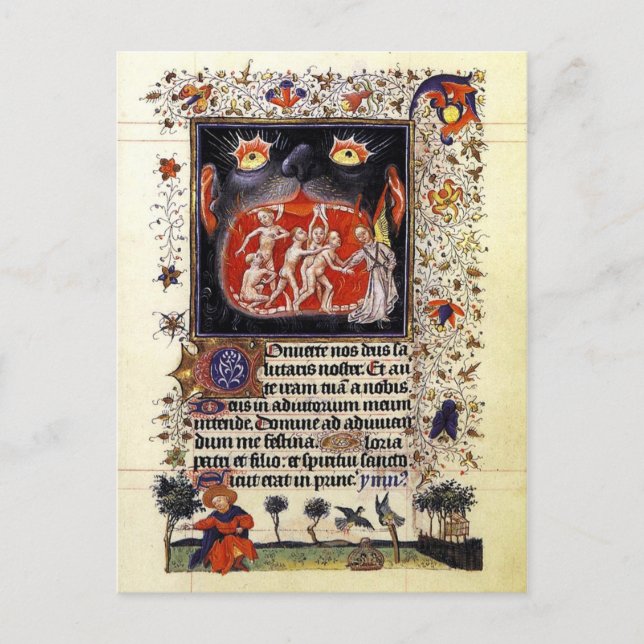 Conuerte nos deus sa
lutaris noster. Et auer
te iram tuā a nobis.
Deus in adiutorium meum
intende. Domine ad adiuuan
dum me festina. Gloria
patri et filio: et spiritui sancto
Sicut erat in princ. ymn?